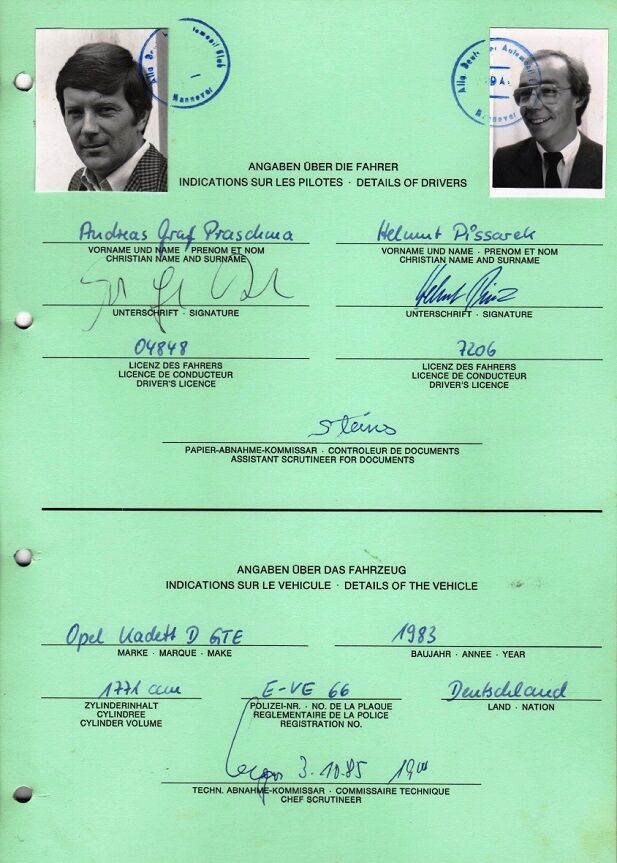 Hannover
Hannover
ANGABEN ÜBER DIE FAHRER
INDICATIONS SUR LES PILOTES · DETAILS OF DRIVERS
Andreas Graf Praschma Helmut Pissarek
VORNAME UND NAME · PRENOM ET NOM VORNAME UND NAME · PRENOM ET NOM
CHRISTIAN NAME AND SURNAME CHRISTIAN NAME AND SURNAME
UNTERSCHRIFT · SIGNATURE UNTERSCHRIFT · SIGNATURE
04848 7206
LICENZ DES FAHRERS LICENZ DES FAHRERS
LICENCE DE CONDUCTEUR LICENCE DE CONDUCTEUR
DRIVER'S LICENCE DRIVER'S LICENCE
PAPIER-ABNAHME-KOMMISSAR · CONTROLEUR DE DOCUMENTS
ASSISTANT SCRUTINEER FOR DOCUMENTS
ANGABEN ÜBER DAS FAHRZEUG
INDICATIONS SUR LE VEHICULE · DETAILS OF THE VEHICLE
Opel Kadett D GTE 1983
MARKE · MARQUE · MAKE BAUJAHR · ANNEE · YEAR
1771 ccm E-VE 66 Deutschland
ZYLINDERINHALT POLIZEI-NR. · NO. DE LA PLAQUE LAND · NATION
CYLINDREE REGLEMENTAIRE DE LA POLICE
CYLINDER VOLUME REGISTRATION NO.
3.10.85
TECHN. ABNAHME-KOMMISSAR · COMMISSAIRE TECHNIQUE
CHEF SCRUTINEER